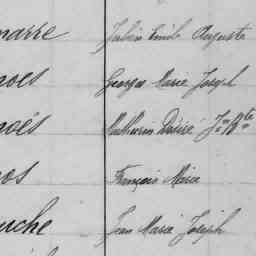 marre Julien Emile Auguste
noes Georges Marie Joseph
noës Mathurin Désiré Jn Bte
os François Marie
uche Jean Marie Joseph